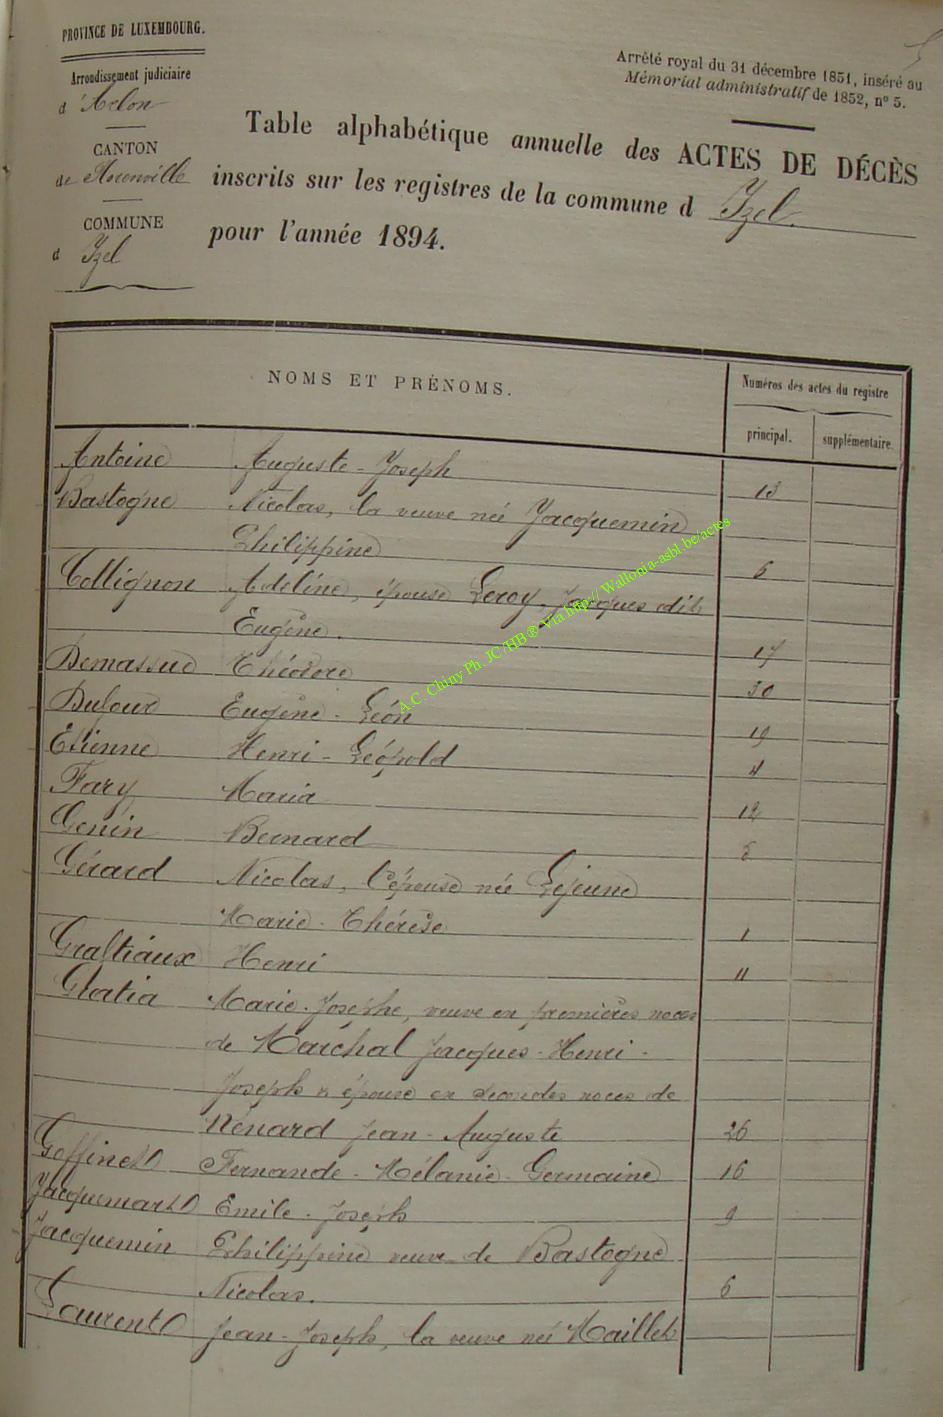 PROVINCE DE LUXEMBOURG.
Arrondissement judiciaire
d'Arlon
CANTON
de Florenville
COMMUNE
d Izel
Arrêté royal du 31 décembre 1851, inséré au
Mémorial administratif de 1852, nº 5.
Table alphabétique annuelle des ACTES DE DÉCÈS
inscrits sur les registres de la commune d Izel.
pour l'année 1894.
NOMS ET PRÉNOMS.
Numéros des actes du registre
principal.
supplémentaire.
Antoine Auguste-Joseph 13
Bastogne Nicolas, la veuve née Jacquemin
Philippine 6
Collignon Adeline, épouse Leroy, Jacques dit
Eugène. 17
Théodore 30
Dufour Eugène-Léon 19
Etienne Henri-Léopold 4
Fary Maria 12
Genin Bernard
Gérard Nicolas, l'épouse née Lejeune
Marie-Thérèse 1
Graltiaux Henri 11
Marie-Josephe, veuve en premières noces
de Marchal Jacques-Henri-
Joseph & épouse en secondes noces de
Jean-Auguste 26
Goffinet Fernande-Mélanie-Germaine 16
Jacquemart Emile-Joseph 9
Jacquemin Philippine veuve de Bastogne
Nicolas. 6
Laurent Jean-Joseph, la veuve née Maillet
A.C. Chiny Ph. JC/HB ® Via http://Wallonia-asbl.be/actes